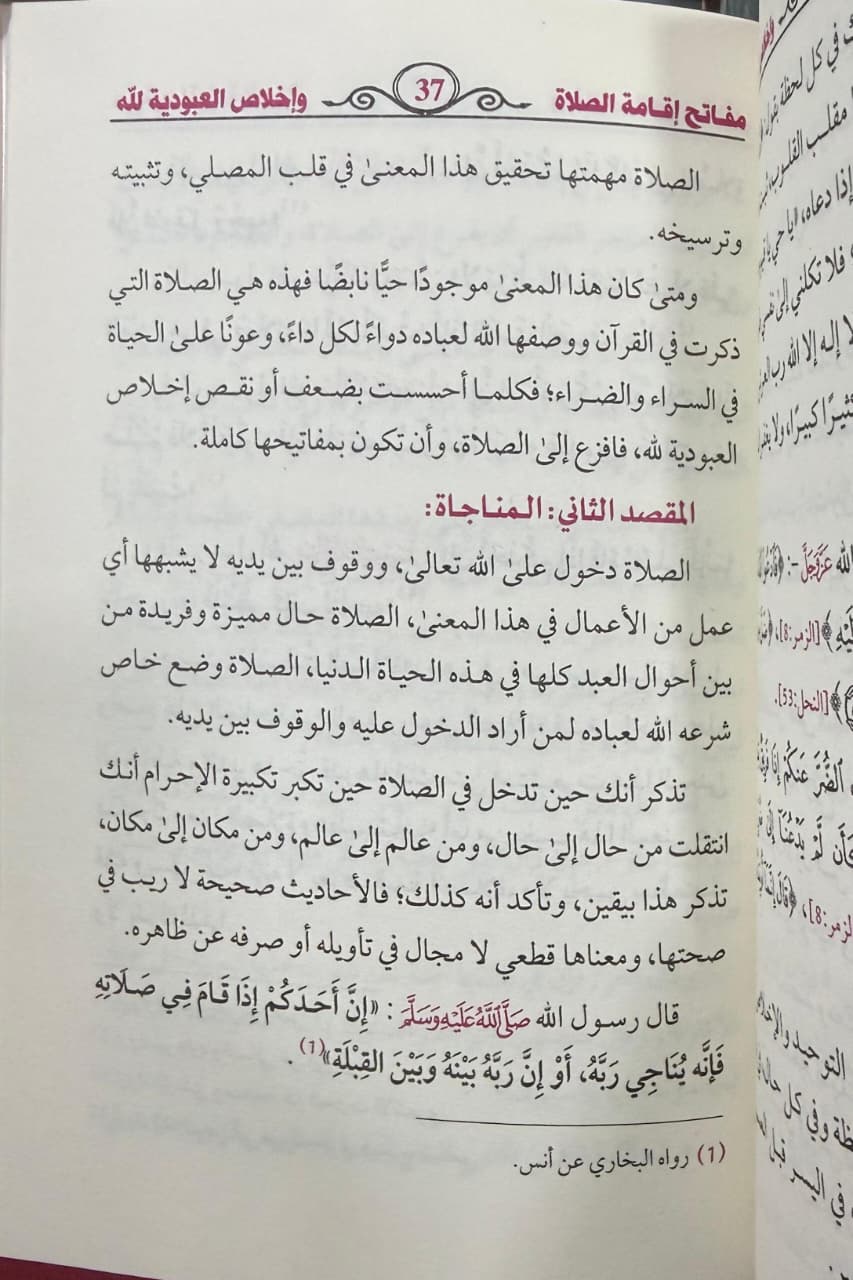 مفاتح إقامة الصلاة 37 وإخلاص العبودية لله
الصلاة مهمتها تحقيق هذا المعنىٰ في قلب المصلي، وتثبيته
وترسيخه.
ومتىٰ كان هذا المعنىٰ موجودًا حيًّا نابضًا فهذه هي الصلاة التي
ذكرت في القرآن ووصفها الله لعباده دواءً لكل داءً، وعونًا علىٰ الحياة
في السراء والضراء؛ فكلما أحسست بضعف أو نقص إخلاص
العبودية لله، فافزع إلىٰ الصلاة، وأن تكون بمفاتيحها كاملة.
المقصد الثاني: المناجاة:
الصلاة دخول علىٰ الله تعالىٰ، ووقوف بين يديه لا يشبهها أي
عمل من الأعمال في هذا المعنىٰ، الصلاة حال مميزة وفريدة من
بين أحوال العبد كلها في هذه الحياة الدنيا، الصلاة وضع خاص
شرعه الله لعباده لمن أراد الدخول عليه والوقوف بين يديه.
تذكر أنك حين تدخل في الصلاة حين تكبر تكبيرة الإحرام أنك
انتقلت من حال إلىٰ حال، ومن عالم إلىٰ عالم، ومن مكان إلىٰ مكان،
تذكر هذا بيقين، وتأكد أنه كذلك؛ فالأحاديث صحيحة لا ريب في
صحتها، ومعناها قطعي لا مجال في تأويله أو صرفه عن ظاهره.
قال رسول الله صَلَّى اللَّهُ عَلَيْهِ وَسَلَّمَ: «إِنَّ أَحَدَكُمْ إِذَا قَامَ فِي صَلَاتِهِ
فَإِنَّه يُنَاجِي رَبَّهُ، أَوْ إِنَّ رَبَّهُ بَيْنَهُ وَبَيْنَ القِبْلَةِ»(1).
(1) رواه البخاري عن أنس.
في كل لحظة
مقلب القلوب
إذا دعاه،
فلا تكلني إلىٰ
إله إلا الله رب
كبيرًا، ولا
الله عَزَّوَجَلَّ -:
[الزمر:8]،
[النحل:53].
الضُّرَّ عَنكُمْ إِذَا
كَأَن لَّمْ يَدْعُنَا إِلَىٰ
[الزمر:8]،
التوحيد
وفي كل
في اليسر قبل